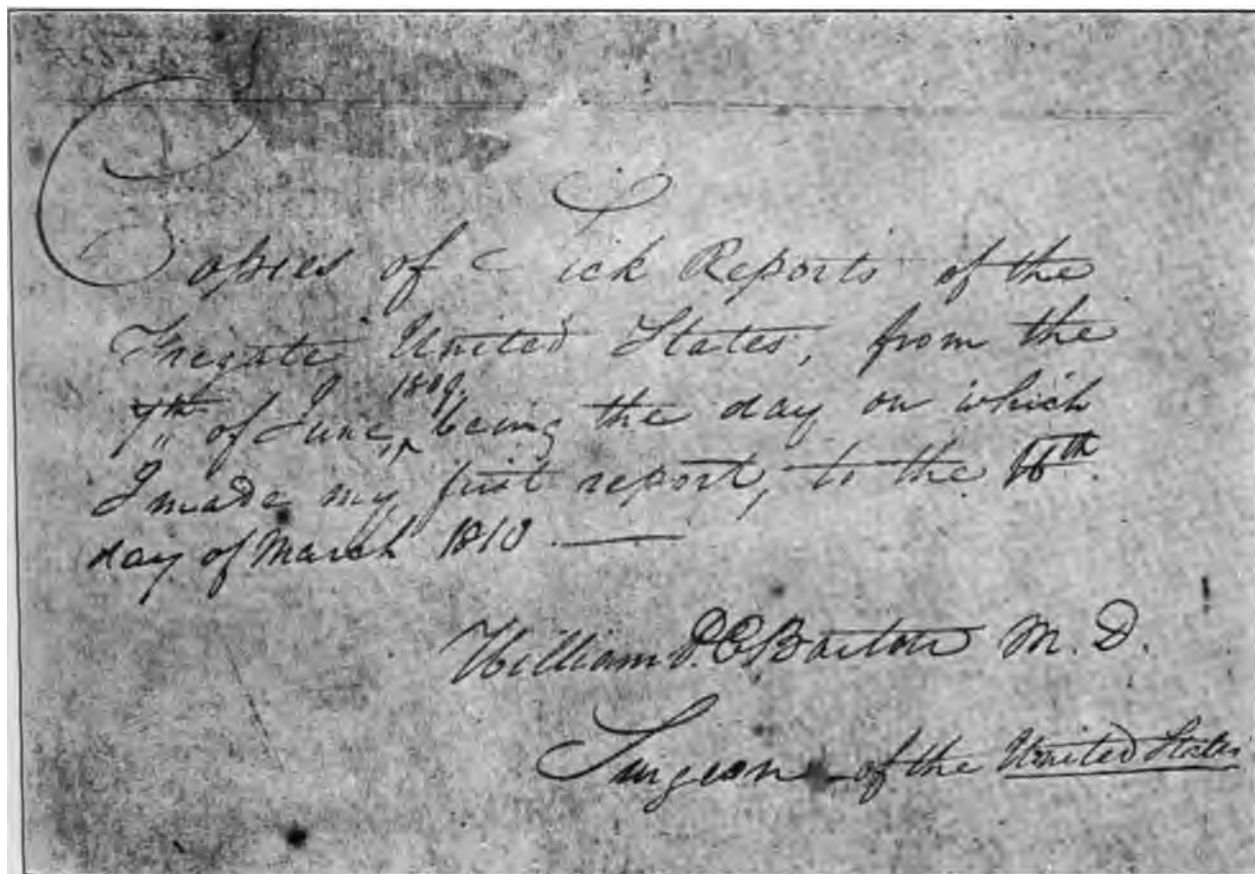 Copies of Sick Reports of the
Fregate United States, from the
7th of June, 1809, being the day on which
I made my first report, to the
day of March 1810
William P.C. Barton M.D.
Surgeon of the United States